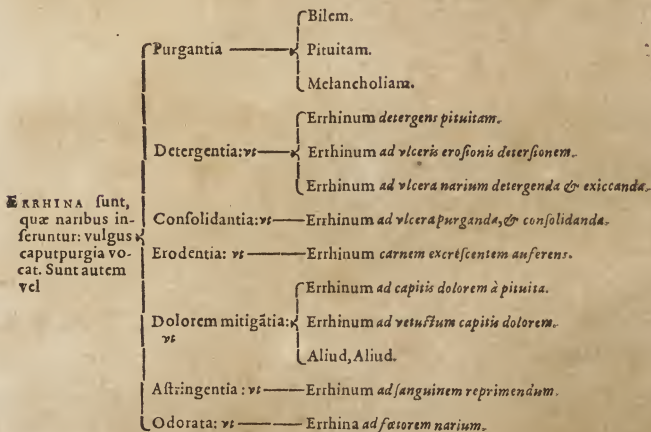 ERRHINA sunt,
quæ naribus in-
ſeruntur: vulgus
caputpurgia vo-
cat. Sunt autem
vel
Purgantia
Bilem.
Pituitam.
Melancholiam.
Detergentia: vt
Errhinum detergens pituitam.
Errhinum ad vlceris eroſionis deterſionem.
Errhinum ad vlcera narium detergenda & exiccanda.
Conſolidantia: vt Errhinum ad vlcera purganda, & conſolidanda.
Erodentia: vt Errhinum carnem excreſcentem auferens.
Dolorem mitigãtia:
vt
Errhinum ad capitis dolorem à pituita.
Errhinum ad vetuſtum capitis dolorem.
Aliud, Aliud.
Aſtringentia: vt Errhinum ad ſanguinem reprimendum.
Odorata: vt Errhina ad fœtorem narium.